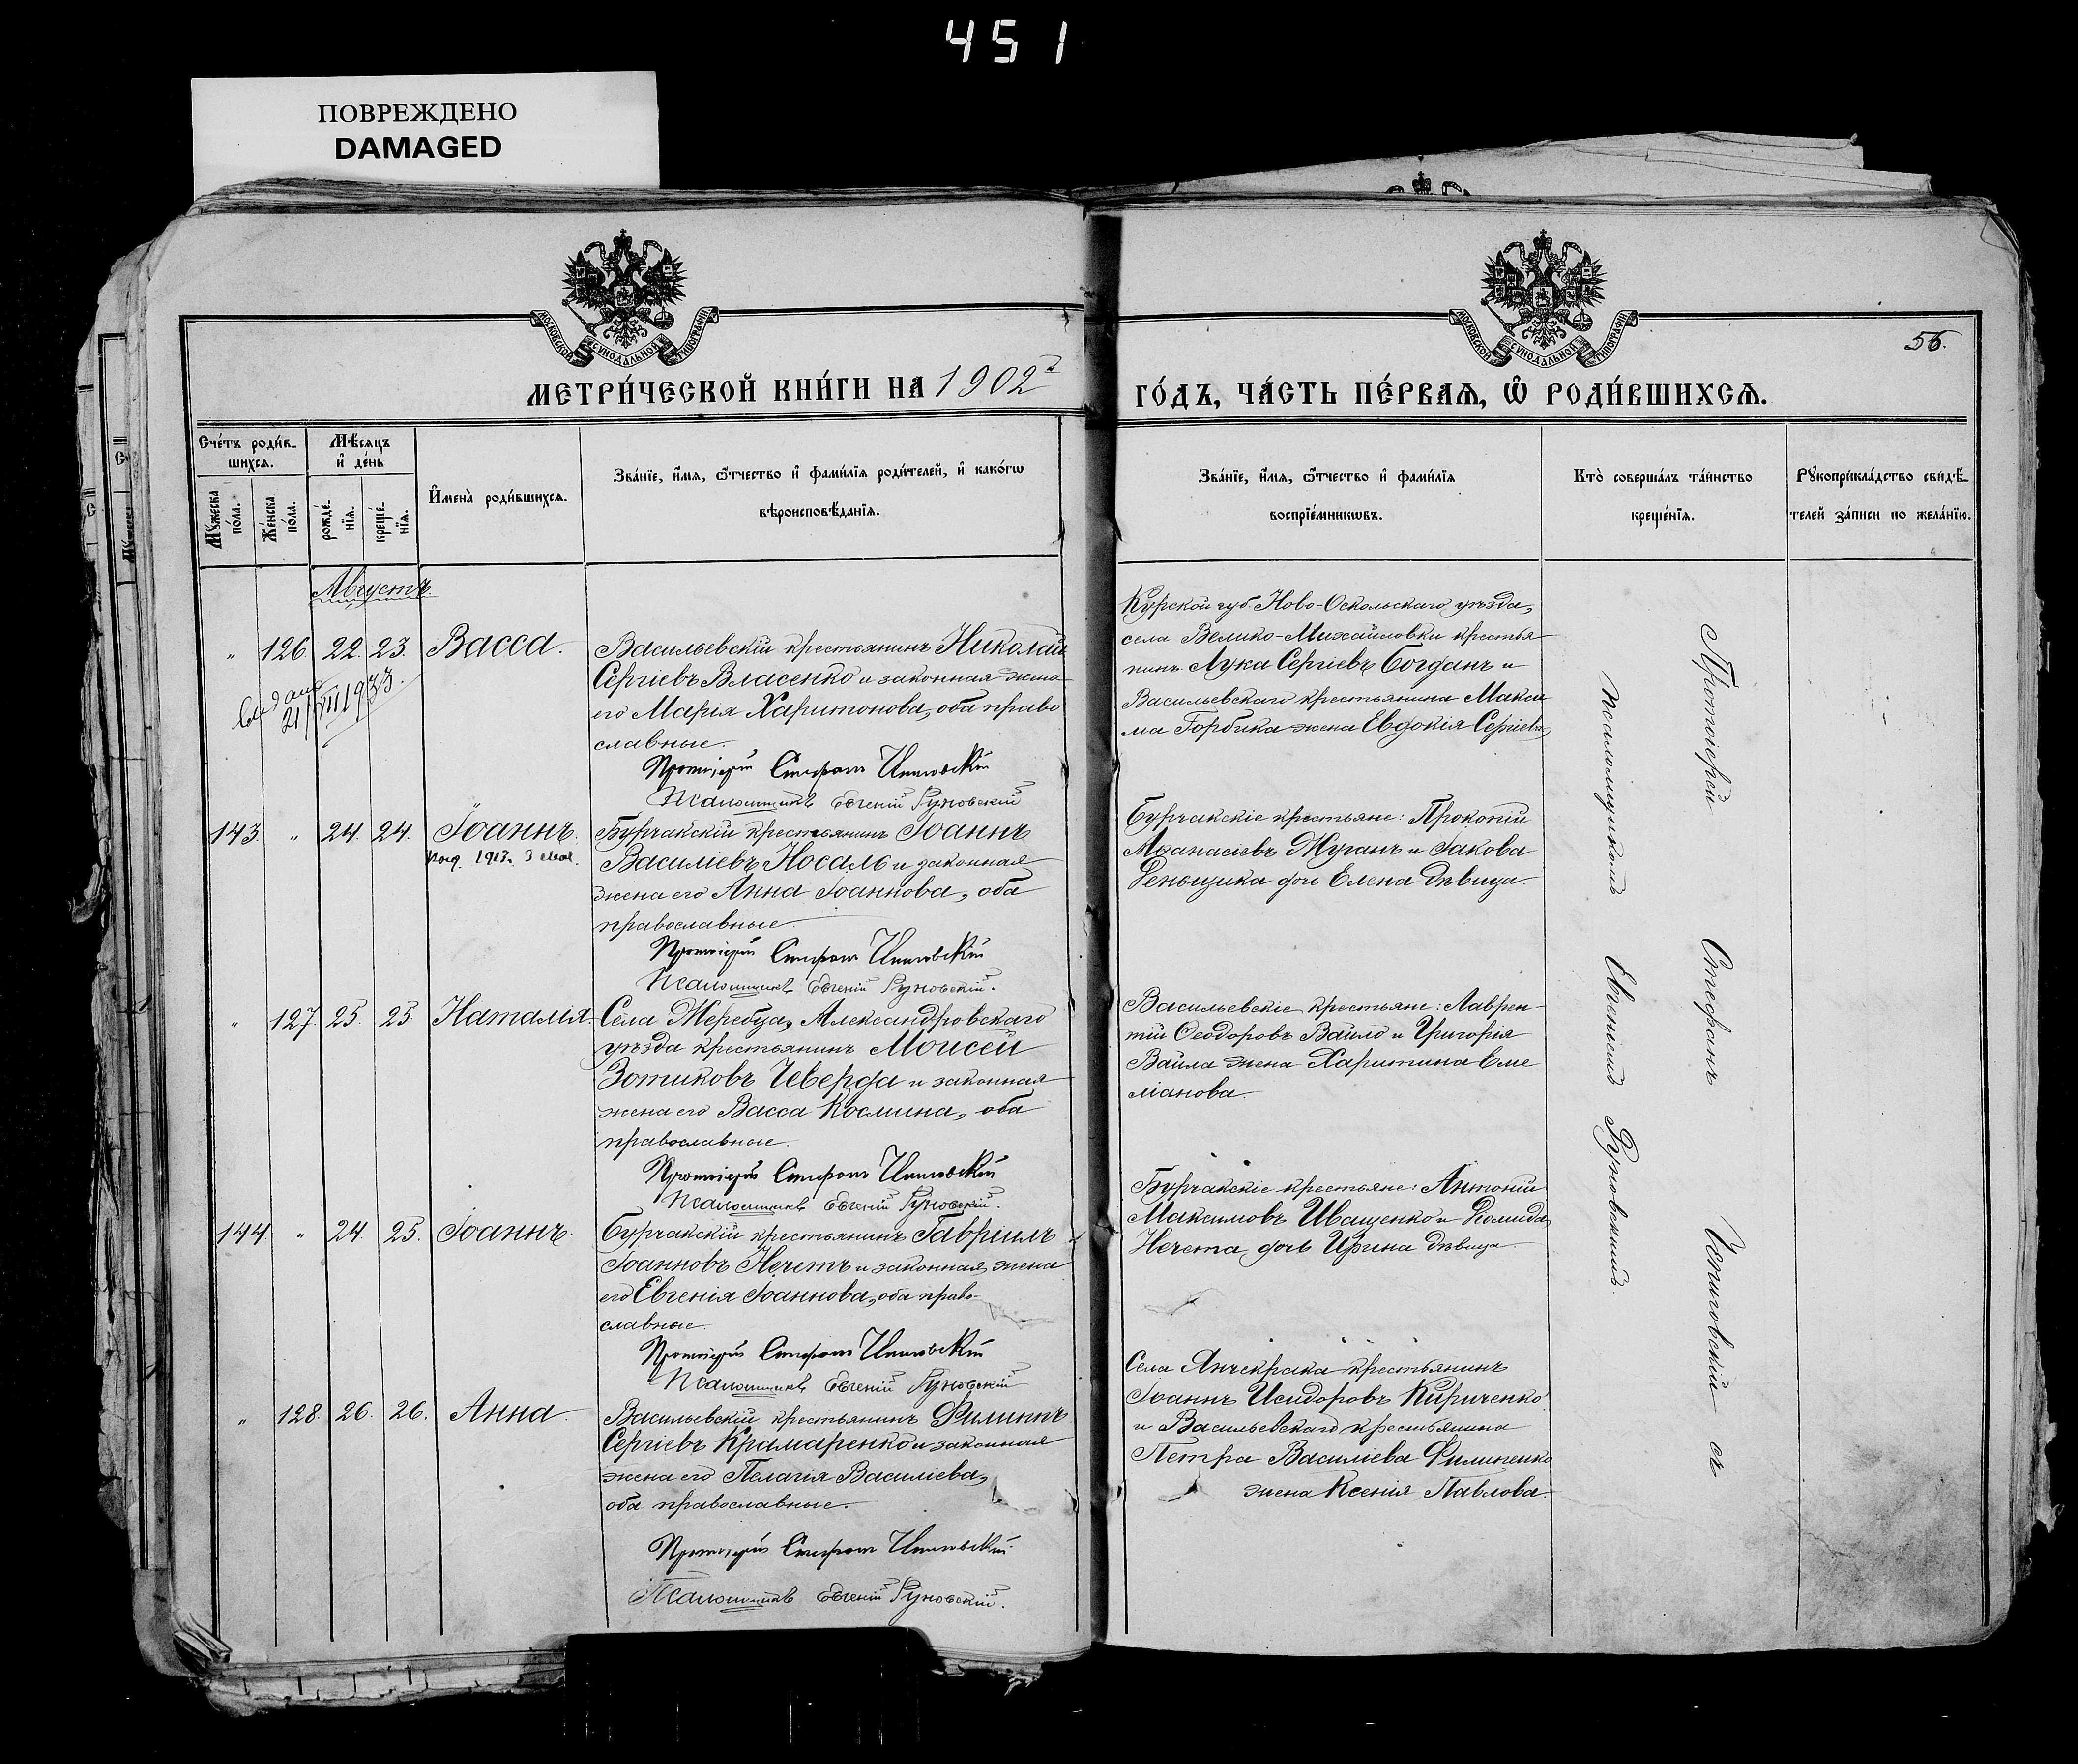 451
ПОВРЕЖДЕНО
DAMAGED
МОСКОВСКОЙ СѴНОДАЛЬНОЙ ТИПОГРАФІИ
МОСКОВСКОЙ СѴНОДАЛЬНОЙ ТИПОГРАФІИ
56.
МЕТРИ́ЧЕСКОЙ КНИ́ГИ НА 1902й
ГО́ДЪ, ЧА́СТЬ ПЕ́РВАѦ, Ѽ РОДИ́ВШИХСѦ.
Сче́тъ роди́в-
шихсѧ.
Мѣ́сѧцъ
и҆ де́нь
Мꙋжеска
по́ла.
Же́нска
по́ла.
рожде́-
нїѧ.
креще́-
нїѧ.
И҆мена̀ роди́вшихсѧ.
Зва́нїе, и҆́мѧ, ѻ҆́тчество и҆ фами́лїѧ роди́телей, и҆ како́гѡ
вѣроисповѣ́данїѧ.
Зва́нїе, и҆́мѧ, ѻ҆́тчество и҆ фами́лїѧ
воспрїе́мникѡвъ.
Кто̀ соверша́лъ та́инство
креще́нїѧ.
Рꙋкоприкла́дство свидѣ́-
телей за́писи по жела́нїю.
Августъ.
" 126. 22. 23. Васса.
21/VII 1933.
Васильевскій крестьянинъ Николай
Сергіевъ Власенко и законная жена
его Марія Харитонова, оба право
славные.
Протоіерей Стефанъ Чепиговскій
Псаломщикъ Евгеній Руновскій
Курской губ. Ново-Оскольскаго уѣзда,
села Велико-Михайловки крестья
нинъ Лука Сергіевъ Богданъ и
Васильевскаго крестьянина Макси
ма Горбика жена Евдокія Сергіева
143. " 24. 24. Іоаннъ.
1917г. 3
Бурчакскій крестьянинъ Іоаннъ
Василіевъ Носаль и законная
жена его Анна Іоаннова, оба
православные.
Протоіерей Стефанъ Чепиговскій
Псаломщикъ Евгеній Руновскій.
Бурчакскіе крестьяне: Прокопій
Аѳанасіевъ Жуганъ и Іакова
дочь Елена дѣвица.
" 127. 25. 25. Наталія.
Села Жеребца, Александровскаго
уѣзда крестьянинъ Моисей
Зотиковъ Чеверда и законная
жена его Васса Космина, оба
православные.
Протоіерей Стефанъ Чепиговскій
Псаломщикъ Евгеній Руновскій.
Васильевскіе крестьяне: Лаврен-
тій Ѳеодоровъ Вайло и Григорія
Вайла жена Харитина Еме
ліанова.
144. " 24. 25. Іоаннъ.
Бурчакскій крестьянинъ Гавріилъ
Іоанновъ Нечетъ и законная жена
его Евгенія Іоаннова, оба право-
славные.
Протоіерей Стефанъ Чепиговскій
Псаломщикъ Евгеній Руновскій
Бурчакскіе крестьяне: Антоній
Максимовъ Иващенко и
Нечета, дочь Ирина дѣвица.
" 128. 26. 26. Анна.
Васильевскій крестьянинъ Филиппъ
Сергіевъ Крамаренко и законная
жена его Пелагія Василіева,
оба православные.
Протоіерей Стефанъ Чепиговскій
Псаломщикъ Евгеній Руновскій.
Села Янчекрака крестьянинъ
Іоаннъ Исидоровъ Кириченко
и Васильевскаго крестьянина
Петра Василіева Филипенко
жена Ксенія Павлова.
Протоіерей Стефанъ Чепиговскій съ
псаломщикомъ Евгеніемъ Руновскимъ.